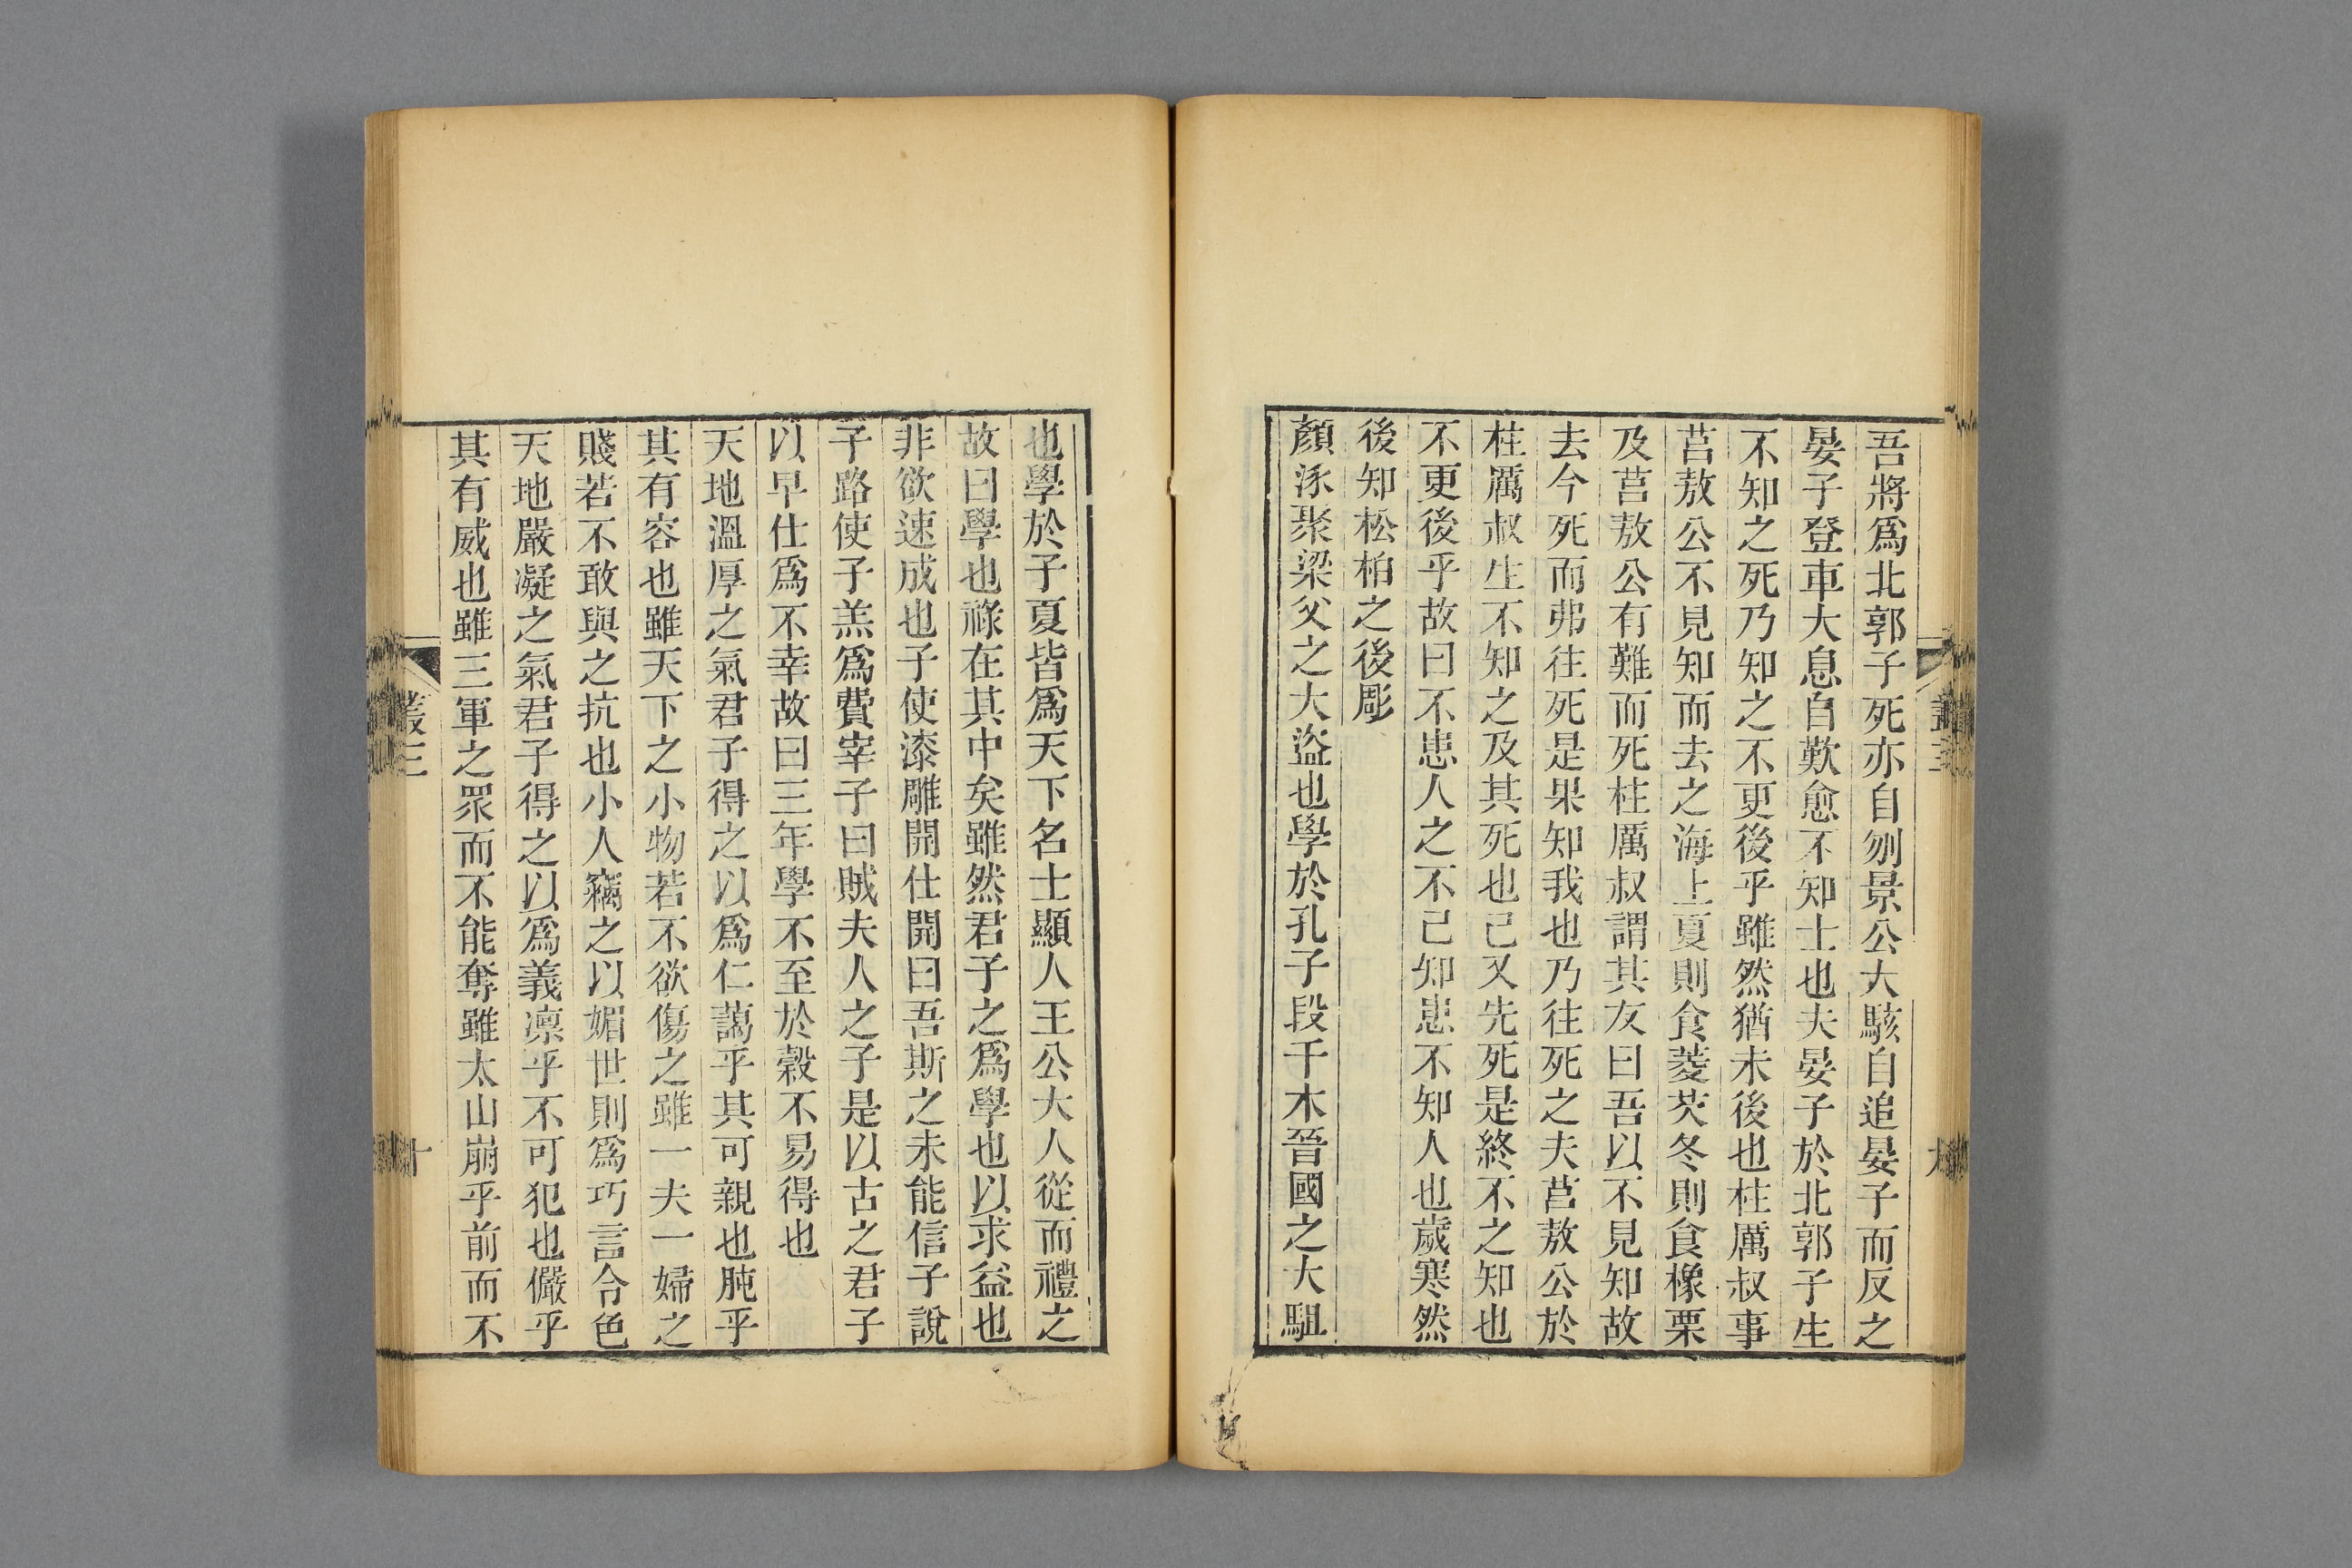 吾將爲北郭子死亦自刎景公大駭自追晏子而反之
晏子登車大息自歎愈不知士也夫晏子於北郭子生
不知之死乃知之不更後乎雖然猶未後也柱厲叔事
莒敖公不見知而去之海上夏則食菱芡冬則食橡栗
及莒敖公有難而死柱厲叔謂其友曰吾以不見知故
去今死而弗往死是果知我也乃往死之夫莒敖公於
柱厲叔生不知之及其死也己又先死是終不之知也
不更後乎故曰不患人之不己知患不知人也歲寒然
後知松柏之後彫
顏涿聚梁父之大盜也學於孔子段干木晉國之大駔
也學於子夏皆爲天下名士顯人王公大人從而禮之
故曰學也祿在其中矣雖然君子之爲學也以求益也
非欲速成也子使漆雕開仕開曰吾斯之未能信子說
子路使子羔爲費宰子曰賊夫人之子是以古之君子
以早仕爲不幸故曰三年學不至於穀不易得也
天地溫厚之氣君子得之以爲仁藹乎其可親也肫乎
其有容也雖天下之小物若不欲傷之雖一夫一婦之
賤若不敢與之抗也小人竊之以媚世則爲巧言令色
天地嚴凝之氣君子得之以爲義凛乎不可犯也儼乎
其有威也雖三軍之眾而不能奪雖太山崩乎前而不
叢三
十